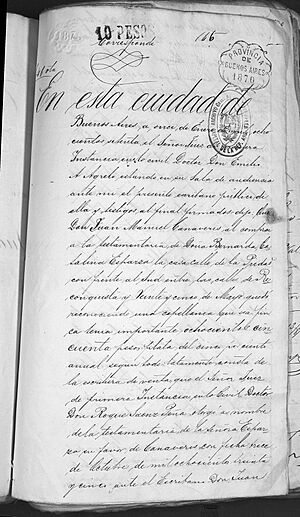 10 PESOS
166
Corresponde
PROVINCIA
DE
BUENOS AIRES
1870
En esta ciudad de
Buenos Aires, a once, de Enero de mil ocho
cientos setenta el Señor Juez de primera
Instancia en lo civil Doctor Don Emilio
A Agrelo estando en su Sala de audiencia
ante mi el presente escribano público de
ella y testigos al final firmados dijo: Que
Don Juan Manuel Canaveris al comprar
a la testamentaria de Doña Bernarda Ca
talina Esparza la casa calle de la Piedad
con frente al Sud entre las calles de Re
conquista y Veinte y cinco de Mayo quedo
reconociendo una capellania que esa fin
ca tenia importante ochocientos cin
cuenta pesos plata del cinco por ciento
anual segun todo latamente consta de
la escritura de venta que el Señor Juez
de primera Instancia en lo Civil Doctor
Don Roque Saenz Peña otorgó a nombre
de la testamentaria de la Señora Espar
za en favor de Canaveris con fecha nueve
de Octubre de mil ochocientos treinta
y cinco ante el Escribano Don Juan